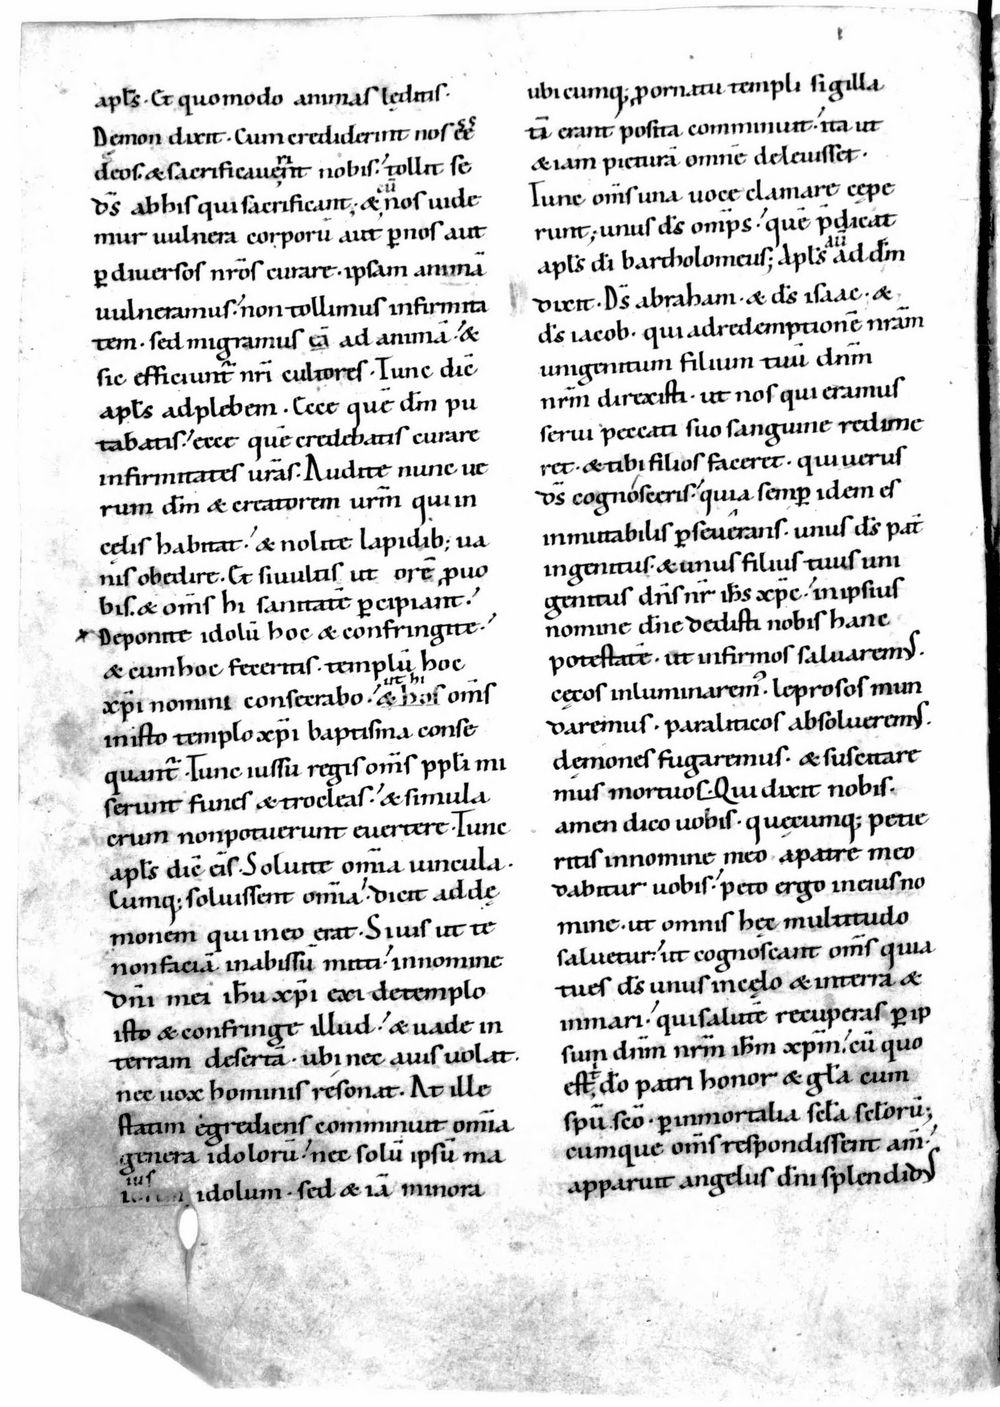 apƚs · Et quomodo animas lęditis ·
Dęmon dixit · Cum crediderint nos ee̅
deos · & sacrificauerint nobis · tollit se
ds̅ ab his qui sacrificant ; & cu̅ nos uide
mur uulnera corporu̅ aut ꝑ nos aut
ꝑ diuersos nr̅os curare · ipsam anima̅
uulneramus · non tollimus infirmita
tem · sed migramus ea̅ ad anima̅ · &
sic efficiunt̅ nr̅i cultores · Tunc dic̅
apƚs ad plebem · Ecce que̅ dm̅ pu
tabatis · ecce que̅ credebatis curare
infirmitates ur̅as · Audite nunc ue
rum dm̅ & creatorem ur̅m qui in
cęlis habitat · & nolite lapidib; ua
nis obedire · Et si uultis ut ore̅ ꝓ uo
bis · & om̅s hi sanitate̅ ꝑcipiant ·
Deponite idolu̅ hoc & confringite ·
& cum hoc feceritis · templu̅ hoc
xp̅i nomini consecrabo · ut hi & hos om̅s
in isto templo xp̅i baptisma conse
quant̅ · Tunc iussu regis om̅s ppƚi mi
serunt funes & trocleas · & simula
crum non potuerunt euertere · Tunc
apƚs dic̅ eis̅ · Soluite om̅ia uincula ·
Cumq; soluissent om̅ia · dicit ad dę
monem qui in eo erat · Si uis ut te
non facia̅ in abissu̅ mitti · in nomine
dn̅i mei ih̅u xp̅i exi de templo
isto & confringe illud · & uade in
terram deserta̅ · ubi nec auis uolat ·
nec uox hominis resonat · At ille
statim egrediens comminuit om̅ia
genera idoloru̅ · nec solu̅ ipsu̅ ma
ius idolum · sed & ia̅ minora
ubicumq; ꝓ ornatu templi sigilla
ta̅ erant posita comminuit · ita ut
& iam pictura̅ omne̅ deleuisset ·
Tunc om̅s una uoce clamare cępe
runt ; unus ds̅ omp̅s · que̅ p̅dicat
apƚs di̅ bartholomeus ; Apƚs au̅ ad dm̅
dixit · Ds̅ abraham · & ds̅ isaac · &
ds̅ iacob · qui ad redemptione̅ nr̅am
unigenitum filium tuu̅ dn̅m
nr̅m direxisti · ut nos qui eramus
serui peccati suo sanguine redime
ret · & tibi filios faceret · qui uerus
ds̅ cognosceris · quia semꝑ idem es
inmutabilis ꝑseuerans · unus ds̅ pat̅
ingenitus · & unus filius tuus uni
genitus dn̅s nr̅ ih̅s xp̅c · in ipsius
nomine dn̅e dedisti nobis hanc
potestate̅ · ut infirmos saluarem⁹ ·
cęcos inluminarem⁹ · leprosos mun
daremus · paraliticos absoluerem⁹ ·
dęmones fugaremus · & suscitare
mus mortuos · Qui dixit nobis ·
amen dico uobis · quęcumq; petie
ritis in nomine meo a patre meo
dabitur uobis · peto ergo in eius no
mine · ut omnis hęc multitudo
saluetur · ut cognoscant om̅s quia
tu es ds̅ unus in cęlo & in terra &
in mari · qui salute̅ recuperas ꝑ ip
sum dn̅m nr̅m ih̅m xp̅m · cu̅ quo
est t̅ do̅ patri honor & gƚa cum
spu̅ sco̅ · ꝑ inmortalia scƚa scƚoru̅ ;
cumque om̅s respondissent am̅ ·
apparuit angelus dn̅i splendid⁹